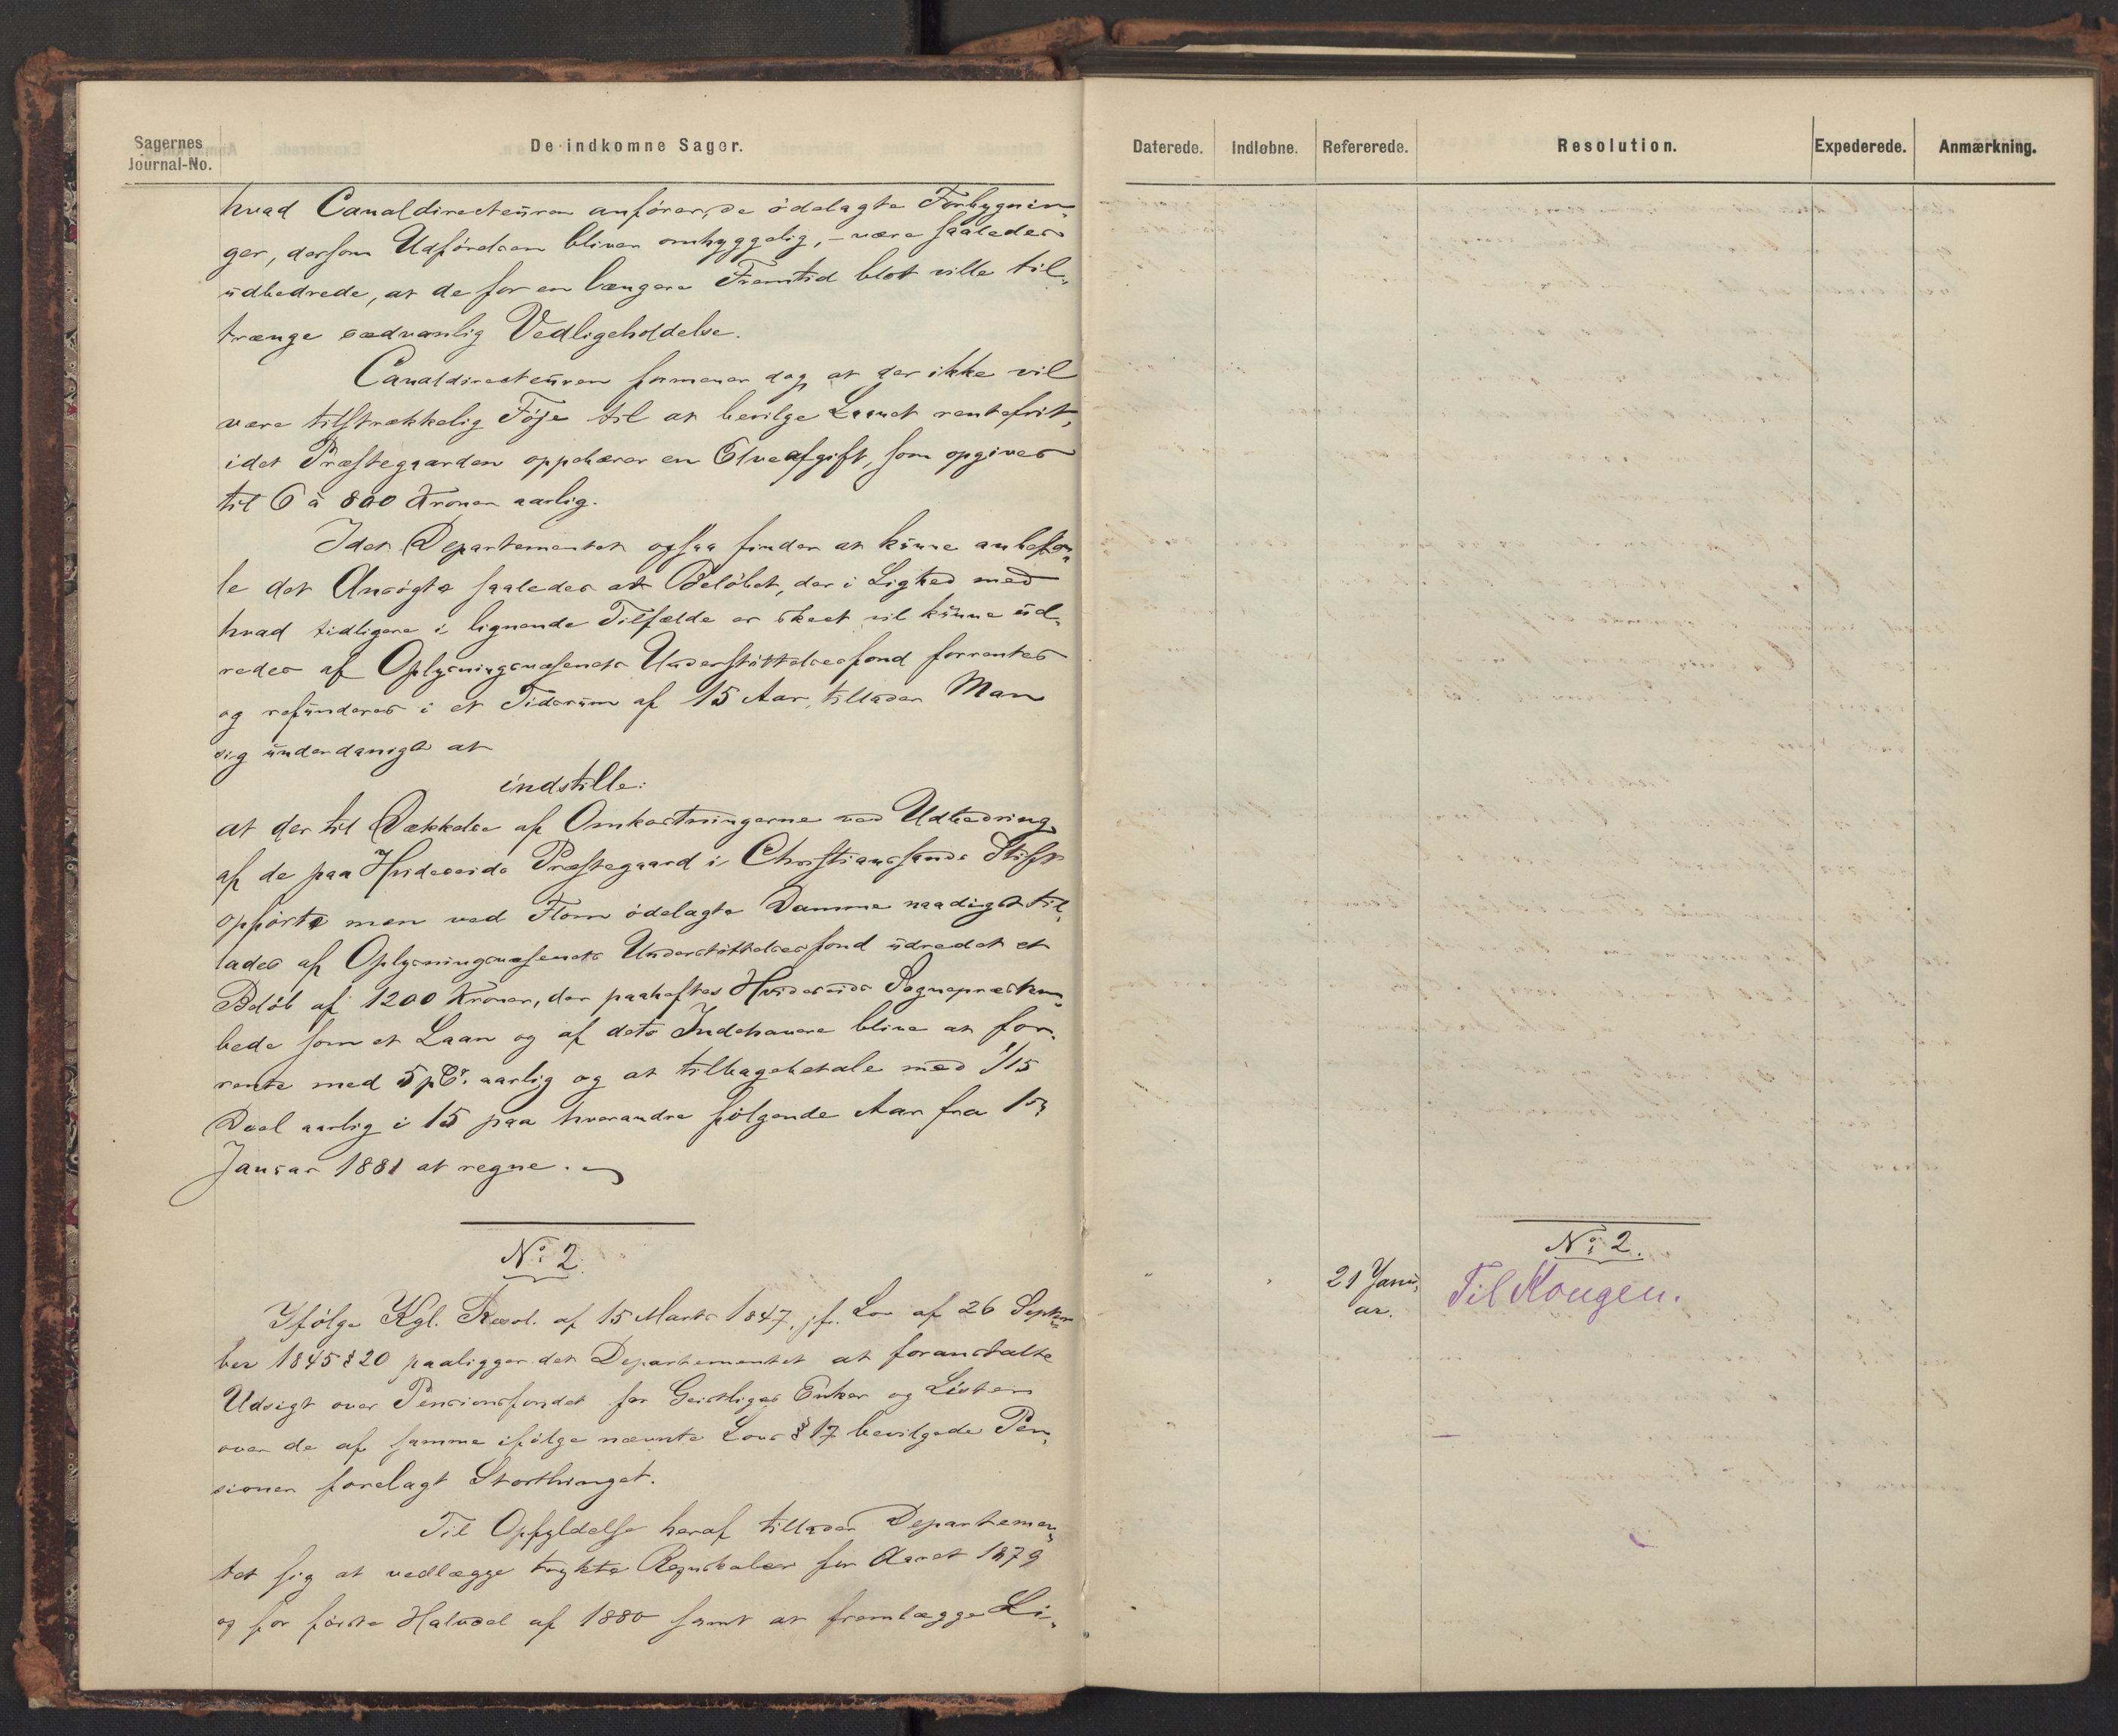 Sagernes
Journal-No.
De indkomne Sager.
hvad Canaldirecteuren anfører, de ödelagte Forbygnin-
ger, dersom Udförelsen bliver omhyggelig, – være saaledes
udbedrede, at de for en længere Fremtid blot ville til-
trænge sædvanlig Vedligeholdelse.
Canaldirecteuren formener dog at der ikke vil
være tilstrækkelig Föje til at bevilge Laanet rentefrit,
idet Præstegaarden oppebærer en Elveafgift, som opgives
til 6 à 800 Kroner aarlig.
Idet Departementet ogsaa finder at kunne anbefa-
le det Ansögte saaledes at Belöbet, der i Lighed med
hvad tidligere i lignende Tilfælde er skeet vil kunne ud-
redes af Oplysningsvæsenets Understöttelsesfond forrentes
og refunderes i et Tidsrum af 15 Aar, tillader Man
sig underdanigst at
indstille:
at der til Dækkelse af Omkostningerne ved Udbedring
af de paa Hvideseids Præstegaard i Christianssands Stift
opförte men ved Flom ödelagte Damme naadigst til-
lades af Oplysningsvæsenets Understöttelsesfond udredet et
Belöb af 1200 Kroner, der paaheftes Hvideseids Sognepræstem-
bede som et Laan og af dets Indehavere blive at for-
rente med 5 pCt. aarlig og at tilbagebetale med 1/15
Deel aarlig i 15 paa hverandre fölgende Aar fra 1ste
Januar 1881 at regne.
No. 2.
Ifölge Kgl. Resol. af 15 Marts 1847, jfr. Lov af 26 Septem-
ber 1845 § 20 paaligger det Departementet at foranstalte
Udsigt over Pensionsfondet for Geistliges Enker og Listen
over de af samme ifölge nævnte Lovs § 17 bevilgede Pen-
sioner forelagt Storthinget.
Til Opfyldelse heraf tillader Departemen-
tet sig at vedlægge trykte Regnskaber for Aaret 1879
og for förste Halvdel af 1880 samt at fremlægge Li-
Daterede.
Indløbne.
Refererede.
Resolution.
Expederede.
Anmærkning.
No. 2.
21 Janu-
ar.
Til Kongen.